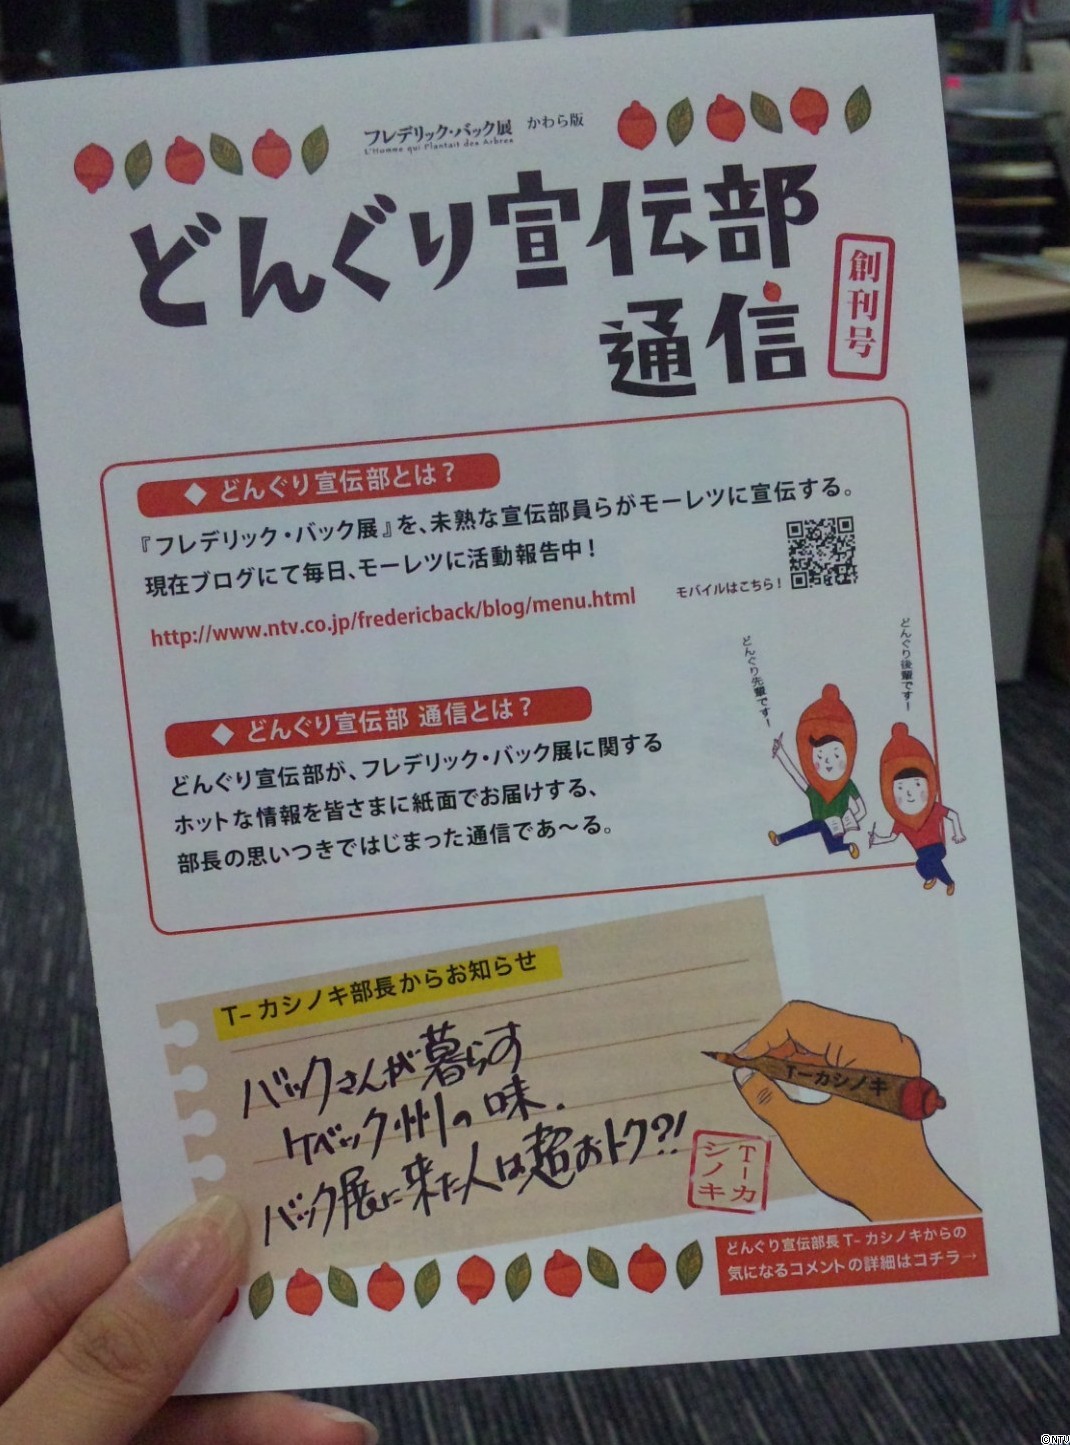 フレデリック・バック展 かわら版
L'Homme qui Plantait des Arbres
どんぐり宣伝部
通信
創刊号
◆ どんぐり宣伝部とは?
『フレデリック・バック展』を、未熟な宣伝部員らがモーレツに宣伝する。
現在ブログにて毎日、モーレツに活動報告中!
モバイルはこちら!
http://www.ntv.co.jp/fredericback/blog/menu.html
どんぐり先輩です!
どんぐり後輩です!
◆ どんぐり宣伝部 通信とは?
どんぐり宣伝部が、フレデリック・バック展に関する
ホットな情報を皆さまに紙面でお届けする、
部長の思いつきではじまった通信であ〜る。
T-カシノキ部長からお知らせ
バックさんが暮らす
ケベック州の味.
バック展に来た人は超おトク?!
T-カシノキ
T-カ
シノキ
どんぐり宣伝部長T-カシノキからの
気になるコメントの詳細はコチラ→
©NTV